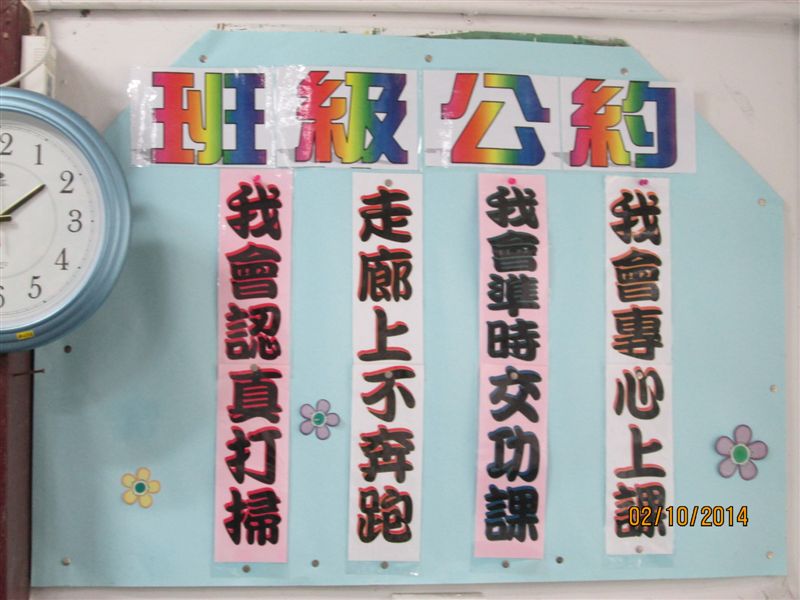 班級公約
我會專心上課
我會準時交功課
走廊上不奔跑
我會認真打掃
1
2
3
4
5
02/10/2014